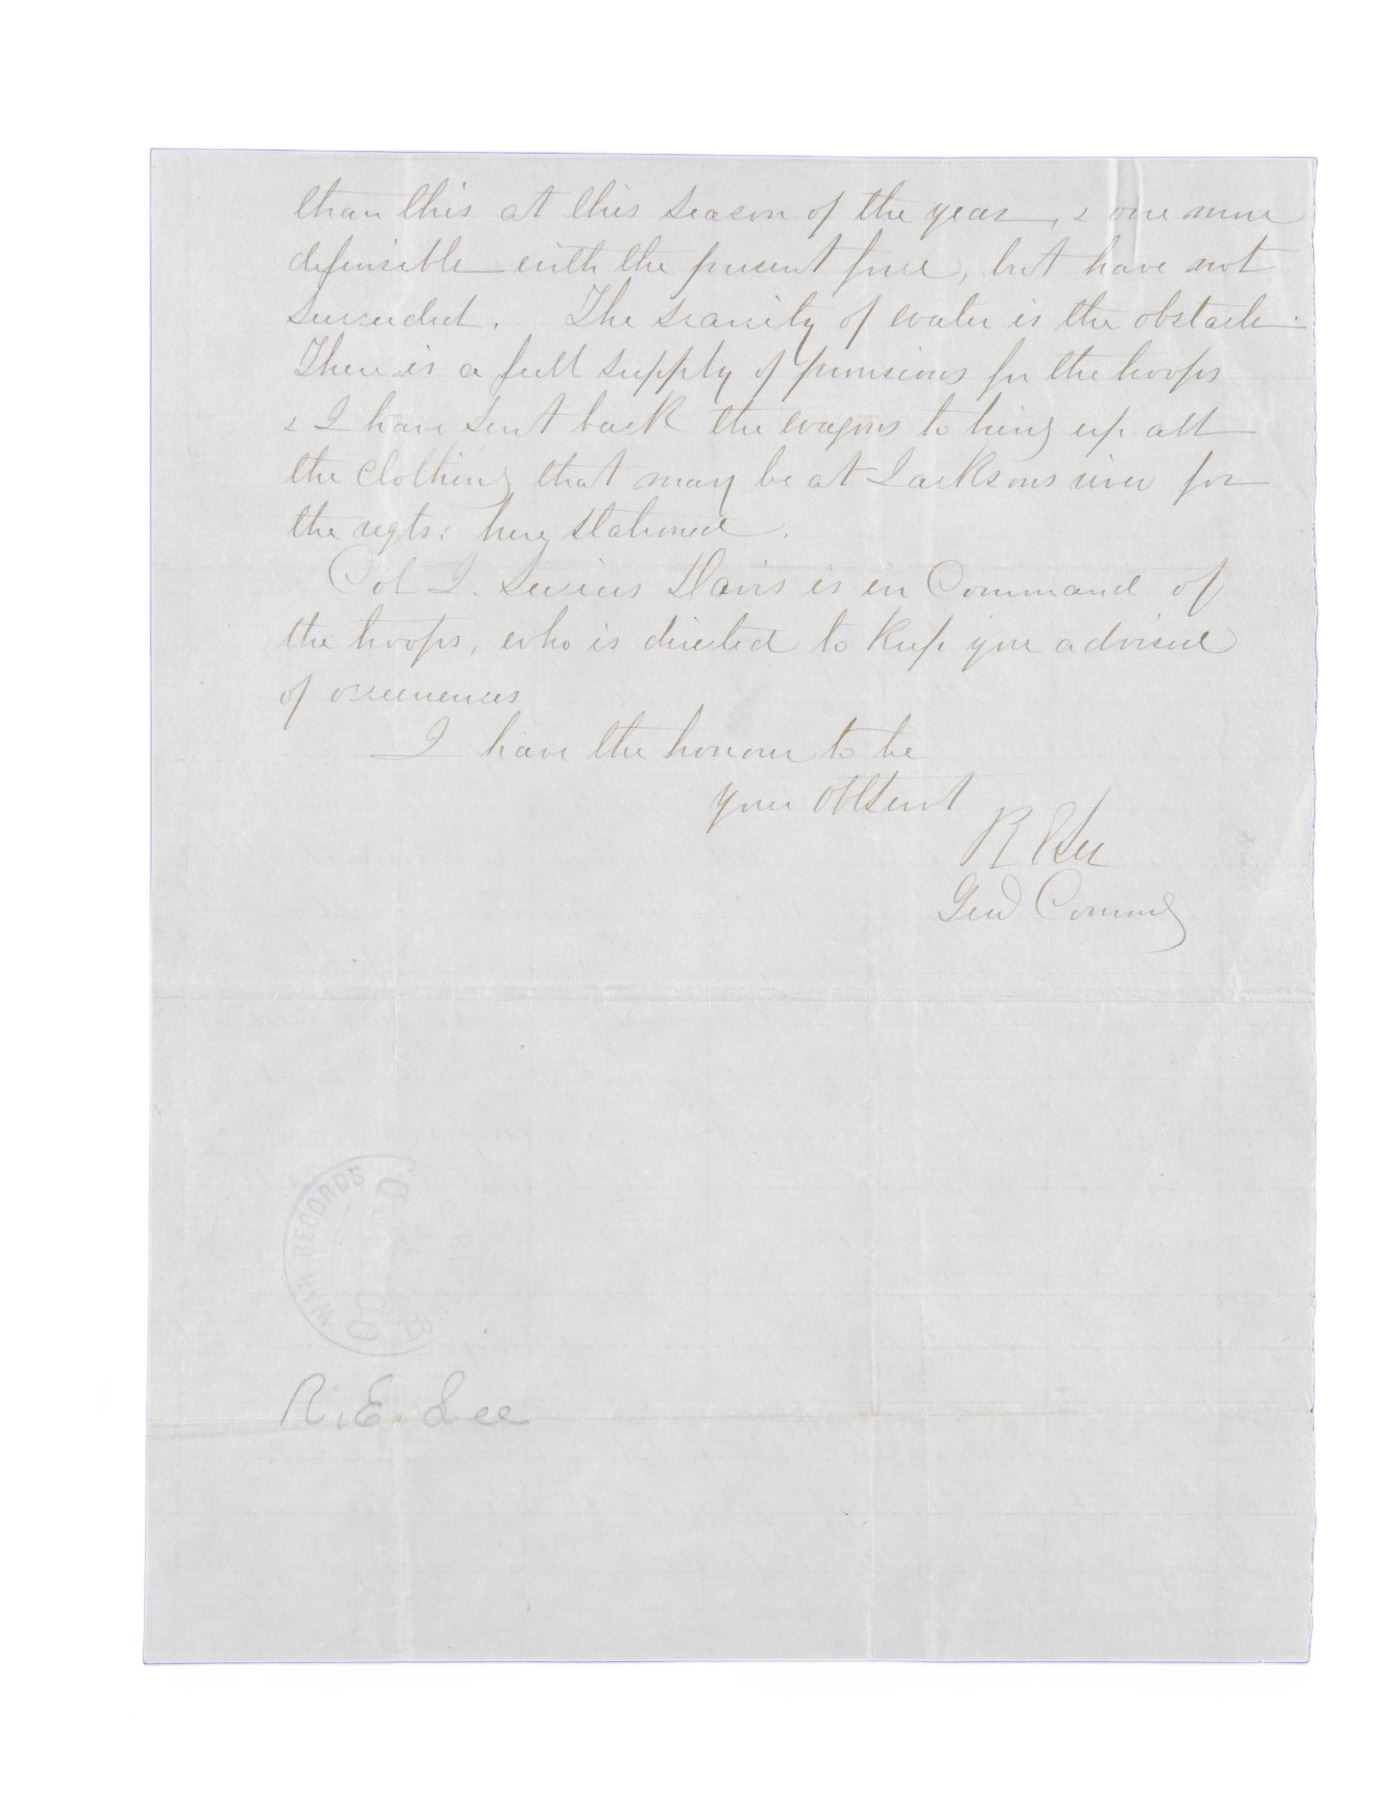 than this at this season of the year, & one more
defensible with the present force, but have not
succeeded. The scarcity of water is the obstacle.
There is a full supply of provisions for the troops
& I have sent back the wagons to bring up all
the clothing that may be at Jacksons river for
the regts: here stationed.
Col J. Lucius Davis is in Command of
the troops, who is directed to keep you advised
of occurrences
I have the honour to be
your obt servt
R E Lee
Genl Commdg
WAR RECORDS
1861-1865
R. E. Lee